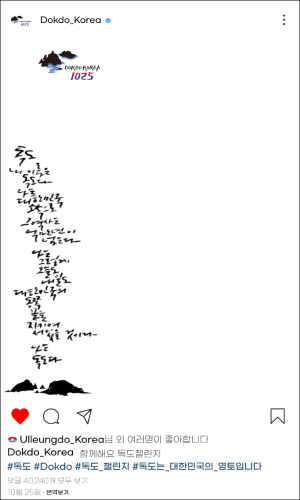 Dokdo_Korea
DOKDO KOREA
1025
독도
내 이름은
독도다
나는
대한민국
그 역사는
넘는다
나는
대한민국의
동쪽
끝을
지키며
서 있을 것이다
나는
독도다
Ulleungdo_Korea님 외 여러명이 좋아합니다
Dokdo_Korea 함께해요 독도챌린지
#독도 #Dokdo #독도_챌린지 #독도는_대한민국의_영토입니다
댓글 40,240개 모두 보기
10월 25일 · 번역보기